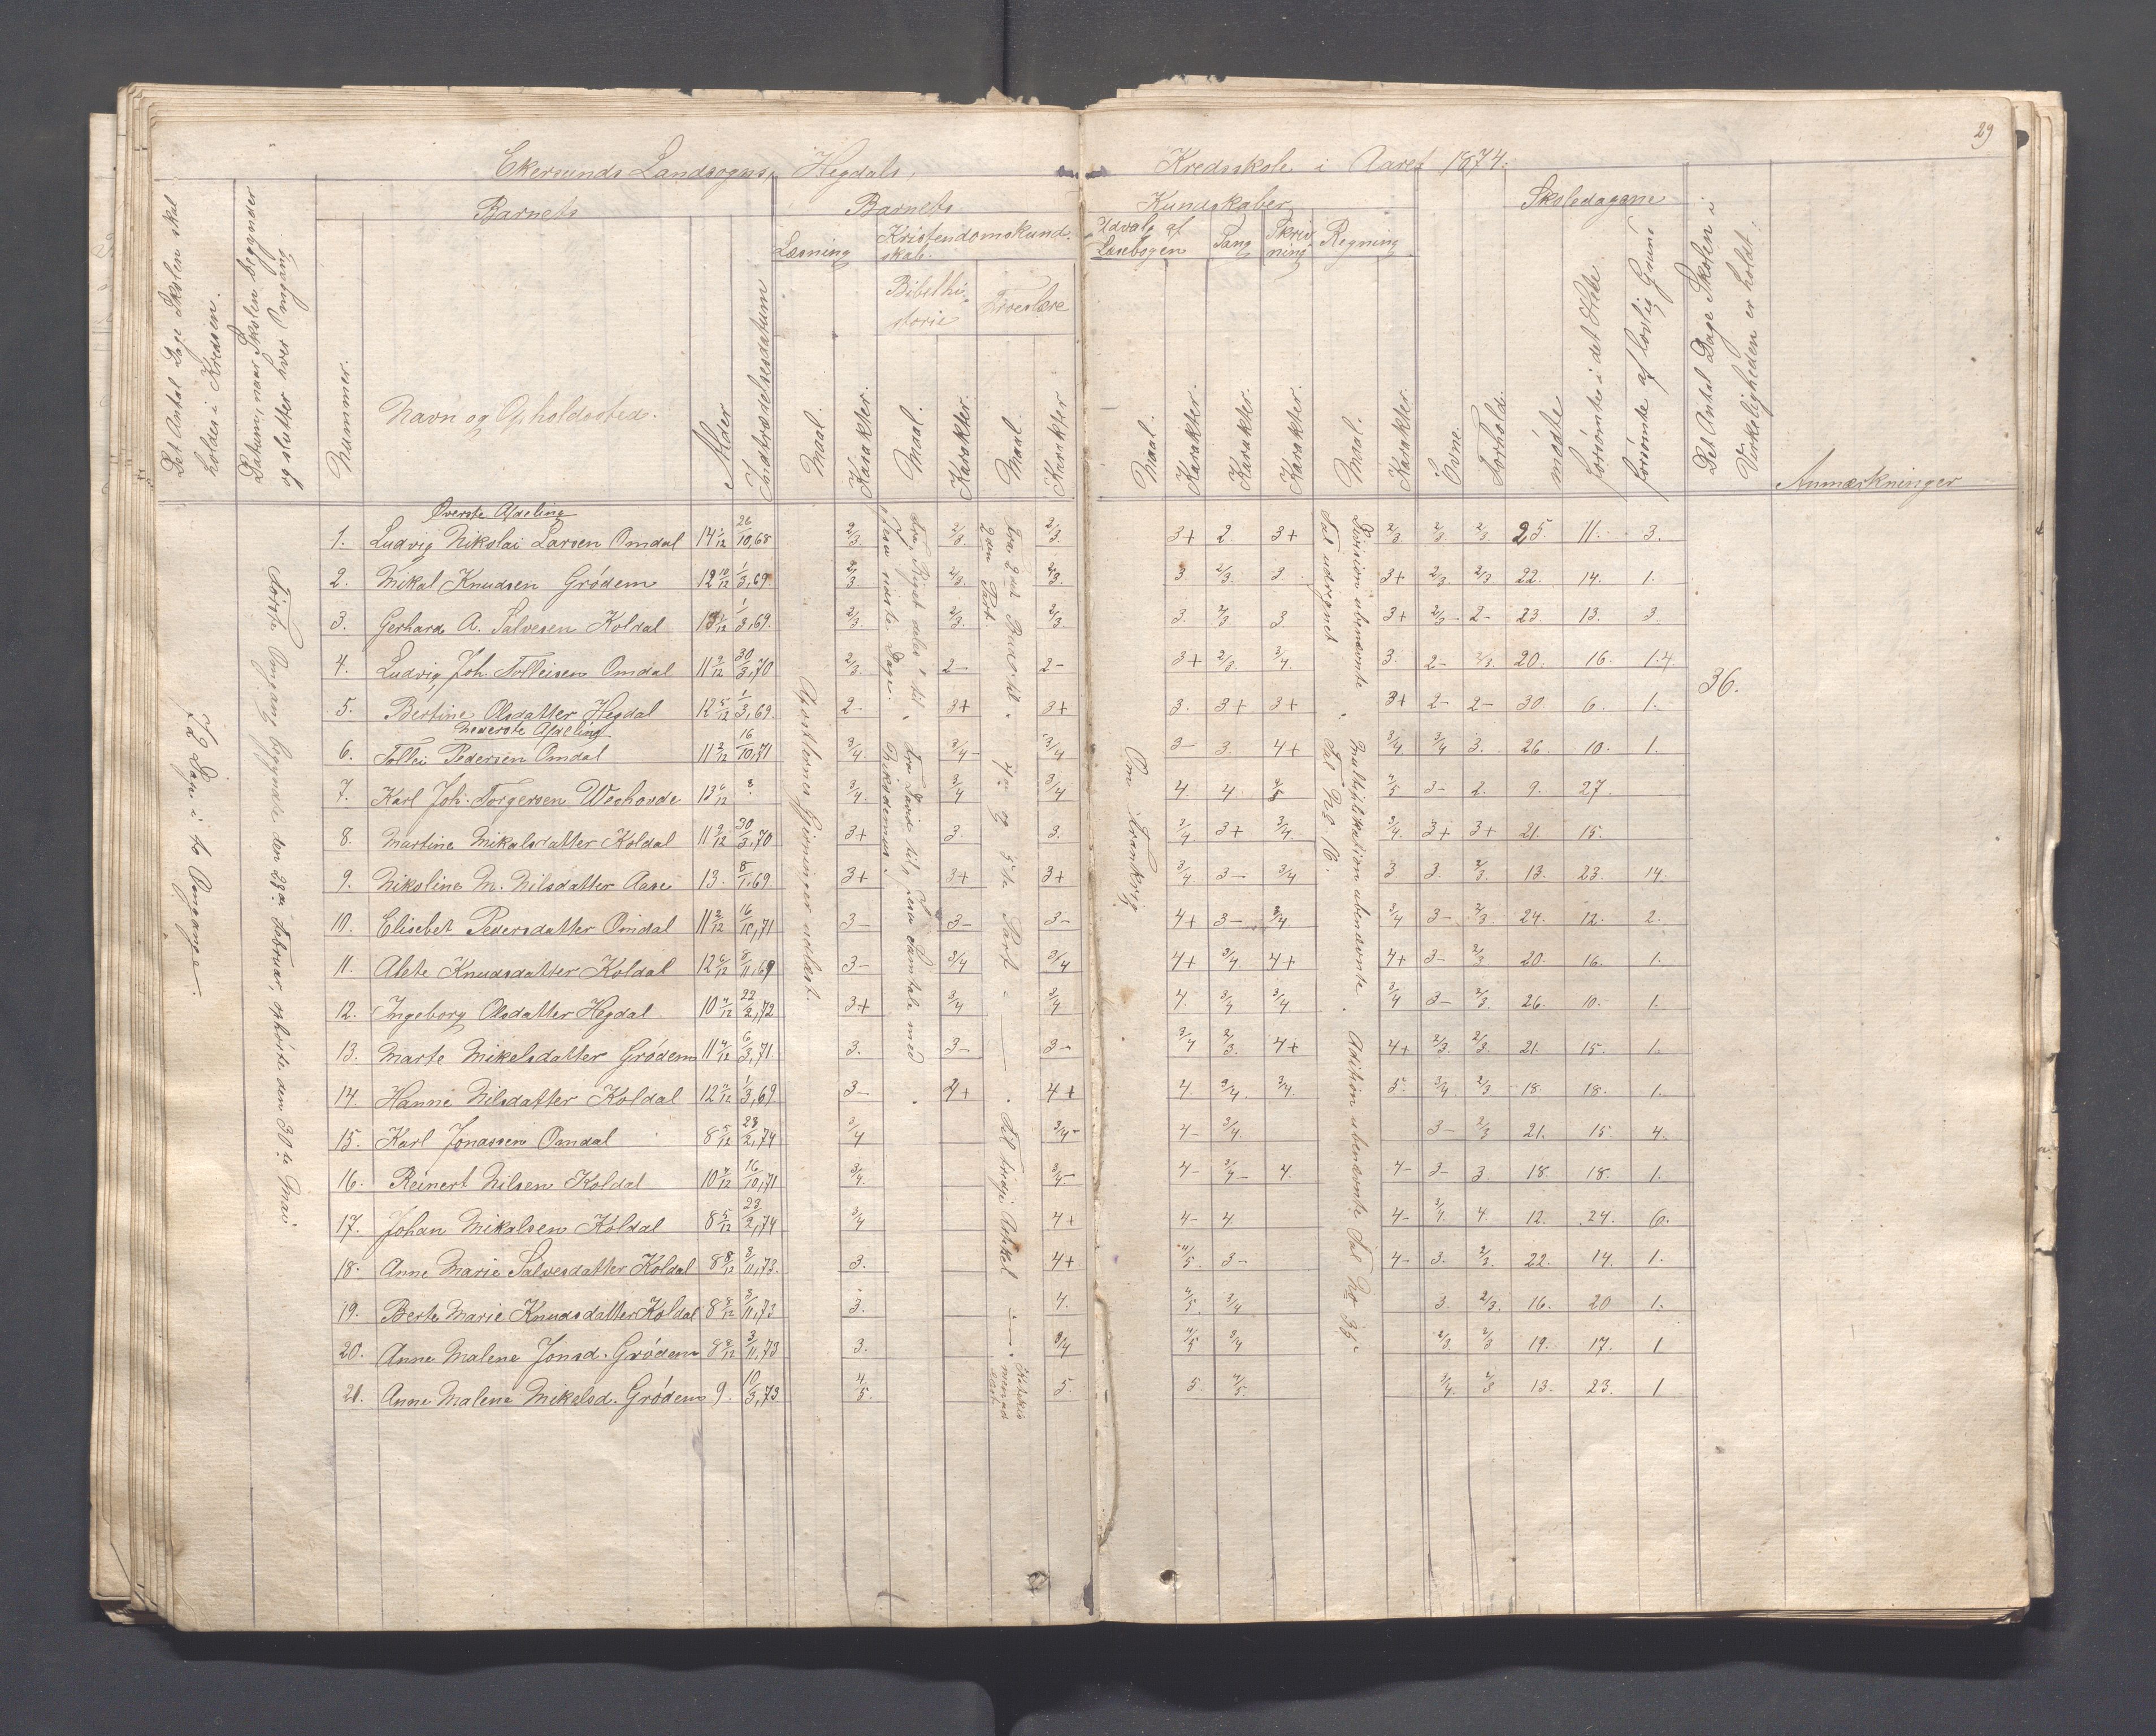 29
Ekersunds Landsogns, Hegdals, Kredsskole i Aaret 1874.
Det Antal Dage Skolen skal holdes i Kredsen.
Datum, naar Skolen begynder og slutter hver Omgang.
Barnets
Nummer.
Navn og Opholdssted.
Alder
Indtrædelsesdatum
Barnets Kundskaber
Læsning
Kristendomskundskab.
Bibelhistorie
Troeslære
Udvalg af Læsebogen
Sang
Skrivning
Regning
Maal. Karakter. Maal. Karakter. Maal. Karakter
Maal. Karakter. Karakter. Karakter. Maal. Karakter.
Evne.
Forhold.
Skoledagene
mødte
forsømte i det Hele
forsømte af lovlig Grund
Det Antal Dage Skolen i Virkeligheden er holdt.
Anmærkninger
72 Dage i to Omgange.
Første Omgang begyndte den 23de Februar, ophørte den 30te Mai
Øverste Afdeling
1. Ludvig Nikolai Larsen Omdal 14 1/12 26/10,68 2/3 2/3. 2/3. 3+ 2. 3+ 2/3 2/3 2/3. 25. 11. 3.
2. Mikal Knudsen Grødem 12 10/12 1/3,69 2/3 2/3. 2/3. 3. 2/3 3. 3+ 2/3 2/3 22. 14. 1.
3. Gerhard A. Salvesen Koldal 13 1/12 1/3,69. 2/3. 2/3. 2/3. 3. 2/3. 3. 3+ 2/3- 2- 23. 13. 3.
4. Ludvig Joh. Tolleisen Omdal 11 9/12 30/3,70 2/3. 2- 2- 3+ 2/3. 3/4. 3. 2- 2/3. 20. 16. 14.
5. Bertine Olsdatter Hegdal 12 5/12 1/3,69. 2- 3+ 3+ 3. 3+ 3+ 3+ 2- 2- 30. 6. 1.
Nederste Afdeling
6. Tollei Pedersen Omdal 11 2/12 16/10,71 3/4. 3/4- 3/4 3- 3. 4+ 3/4 3/4 3. 26. 10. 1.
7. Karl Joh. Torgersen Weshovde 13 6/12 ?. 3/4. 3/4 3/4 4. 4. 4/5 4/5 3- 2. 9. 27.
8. Martine Mikalsdatter Koldal 11 9/12 30/3,70 3+ 3. 3. 3/4 3+ 3/4. 3/4. 3+ 3+ 21. 15.
9. Nikoline M. Nilsdatter Aase 13. 8/1,69. 3+ 3+ 3+ 3/4 3- 3/4 3 3. 2/3. 13. 23. 14.
10. Elisebet Pedersdatter Omdal 11 2/12 16/10,71 3- 3- 3- 4+ 3- 3/4. 3/4 3- 2/3 24. 12. 2.
11. Alete Knudsdatter Koldal 12 6/12 8/11,69 3- 3/4 3/4 4+ 3/4. 4+ 4+ 3- 2/3 20. 16. 1.
12. Ingeborg Olsdatter Hegdal 10 4/12 22/2,72 3+ 3/4 3/4 4. 3/4 3/4. 3/4 3- 2/3. 26. 10. 1.
13. Marte Mikelsdatter Grødem 11 4/12 6/3,71. 3. 3- 3- 3/4 2/3. 4+ 4+ 2/3. 2/3. 21. 15. 1.
14. Hanne Nilsdatter Koldal 12 4/12 1/3,69. 3- 4+ 4+ 4. 3/4. 3/4. 5. 3/4 2/3 18. 18. 1.
15. Karl Jonassen Omdal 8 5/12 23/2,74 3/4 3/4- 4- 3/4. 3- 2/3 21. 15. 4.
16. Reinert Nilsen Koldal 10 4/12 16/10,71 3/4. 3/4- 4- 3/4- 4. 4- 3- 3. 18. 18. 1.
17. Johan Mikalsen Koldal 8 5/12 23/2,74 3/4 4+ 4- 4 4- 3/4 4. 12. 24. 6.
18. Anne Marie Salvesdatter Koldal 8 8/12 3/11,73. 3. 4+ 4/5. 3- 4- 3. 2/3. 22. 14. 1.
19. Berte Marie Knudsdatter Koldal 8 8/12 3/11,73 3. 4. 4/5. 3/4 3. 2/3. 16. 20 1.
20. Anne Malene Jonsd. Grødem 8 8/12 3/11,73 3. 3/4 4/5 3/4 2/3 2/3 19. 17. 1
21. Anne Malene Mikelsd. Grødem 9. 10/3,73 4/5. 5. 5. 4/5. 3/4. 2/3 13. 23. 1
Apostlenes Gjerninger udlæst.
Fra „Riget deles" til „Jesu sidste Dage.
Fra David til „Jesu Samtale med Nikodemus".
Fra 2det Bud til 2den Part.
4de og 5te Part
Til tredje Artikel
Om Frankrig
Division ubenævnte Tal udregnet
Multiplikation ubenævnte. Til No 16.
Adition ubenævnte Tal No 35
36.